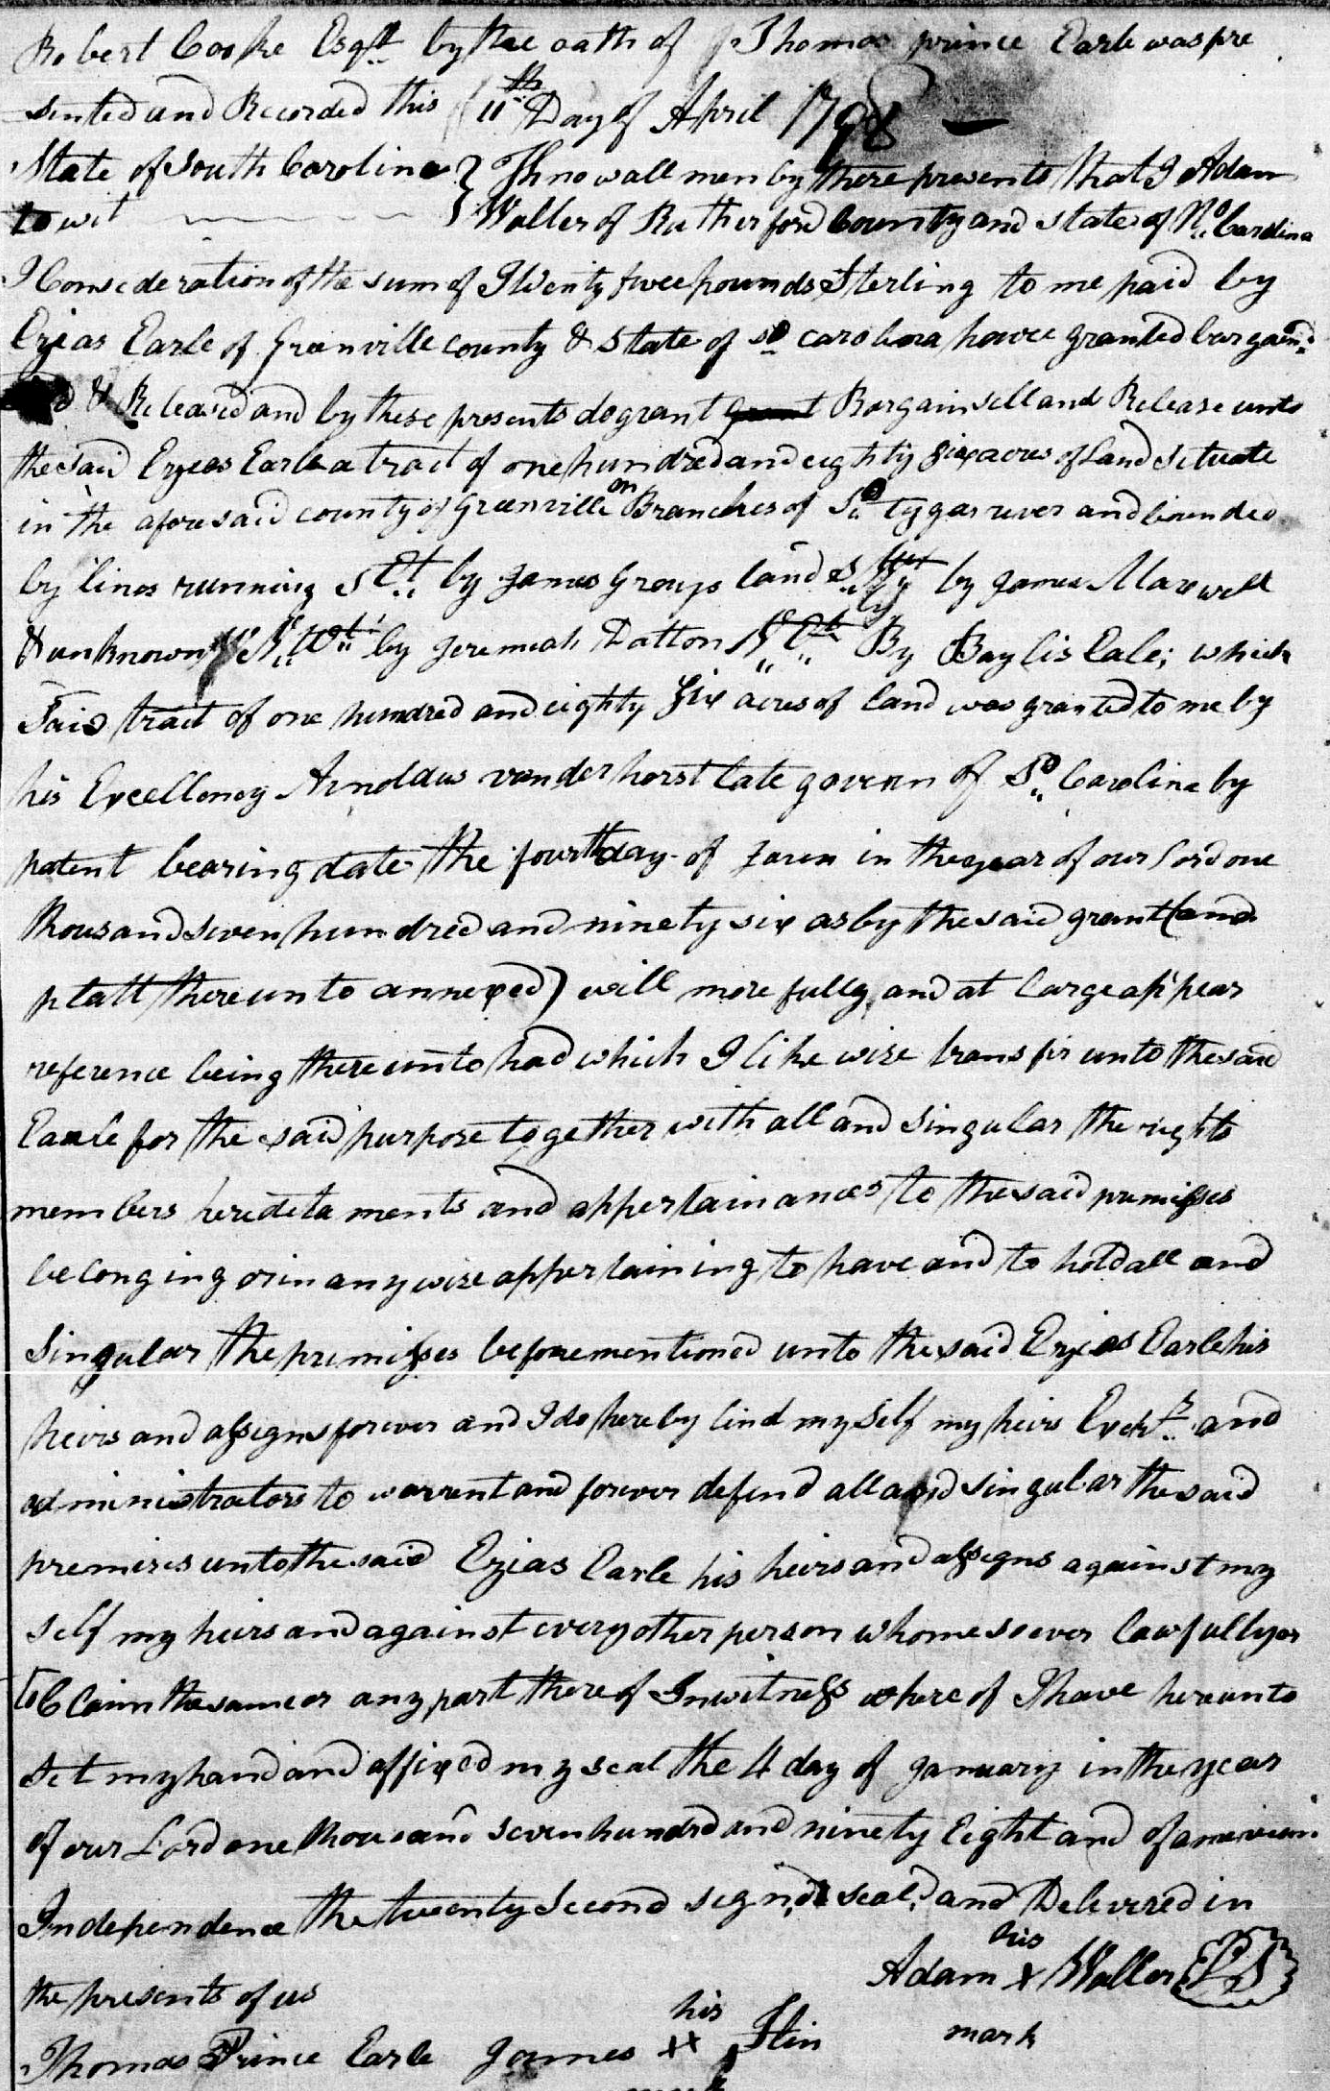 Robert Cooke Esqr by the oath of Thomas prince Earle was pre
sented and Recorded this 11th Day of April 1798 —
State of South Carolina } Know all men by these presents that I Adam
to wit } Waller of Rutherford County and state of No Carolina
I Consideration of the sum of Twenty five pounds Sterling to me paid by
Ezias Earle of Greenville county & State of so carolina have granted bargaind
& Released and by these presents do grant grant Bargain sell and Release unto
the said Ezias Earle a tract of one hundred and eighty six acres of Land Situate
in the aforesaid county of Greenville on Branches of So tygar river and bounded
by lines running S Et by James Grays land S Wt by James Maxwell
& unknown N Wt by Jeremiah Datton N Et By Baylis Eale; which
Said tract of one hundred and eighty Six acres of land was granted to me by
his Excellency Arnoldus vanderhorst late govern of So Carolina by
patent bearing date the fourth day of in the year of our Lord one
thousand seven hundred and ninety six as by the said grant (and
platt thereunto annexed) will more fully and at large appear
reference being thereunto had which I like wise transfir unto the said
Earle for the said purpose together with all and singular the rights
members heredetaments and appertainances to the said premisses
belonging or in any wise appertaining to have and to hold all and
Singular the premisses before mentioned unto the said Ezias Earle his
heirs and assigns forever and I do hereby bind my self my heirs Exrs and
administrators to warrent and forever defend all and singular the said
premises unto the said Ezias Earle his heirs and assigns against my
self my heirs and against every other person whomesoever lawfully or
to Claim the same or any part there of In witness where of I have hereunto
set my hand and affixed my seal the 4 day of January in the year
of our Lord one thousand seven hundrd and ninety Eight and of american
Independence the twenty Second signd seald and Delivered in
the presents of us Adam his x mark Waller LS
Thomas Prince Earle James his xx mark Flin